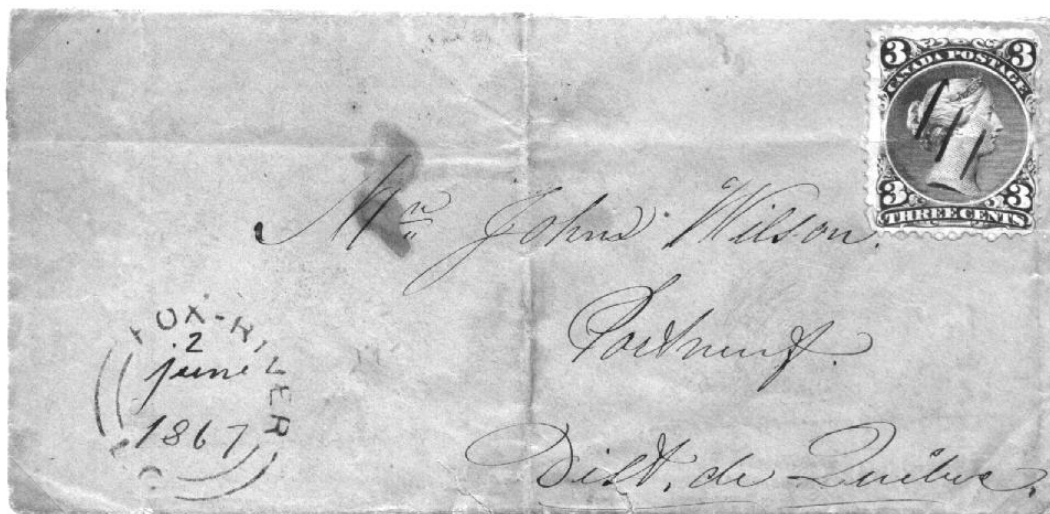 3 3
CANADA POSTAGE
3 3
THREE CENTS
Mrs John Wilson.
Portneuf.
Dist. de Québec.
FOX-RIVER
2
june
1867